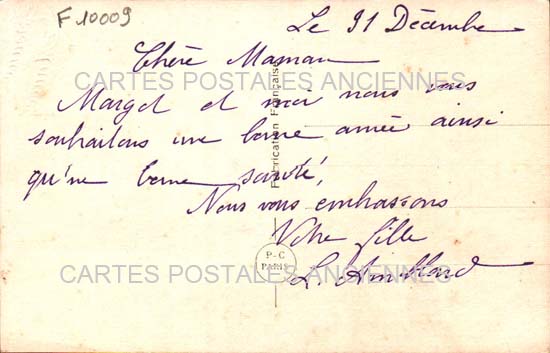 F 10009
Le 31 Décembre
Chère Maman
CARTES POSTALES ANCIENNES
Margot et moi nous vous
souhaitons une bonne année ainsi
qu'ne bonne santé,
Nous vous embrassons
Votre fille
L. Amblard
Fabrication Française
P-C
PARIS
CARTES POSTALES ANCIENNES